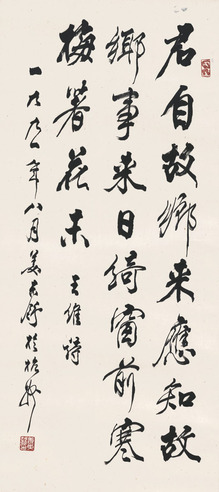 君自故鄉来應知故
鄉事来日綺窗前寒
梅著花未 王維詩
一九九一年八月姜东舒於杭州